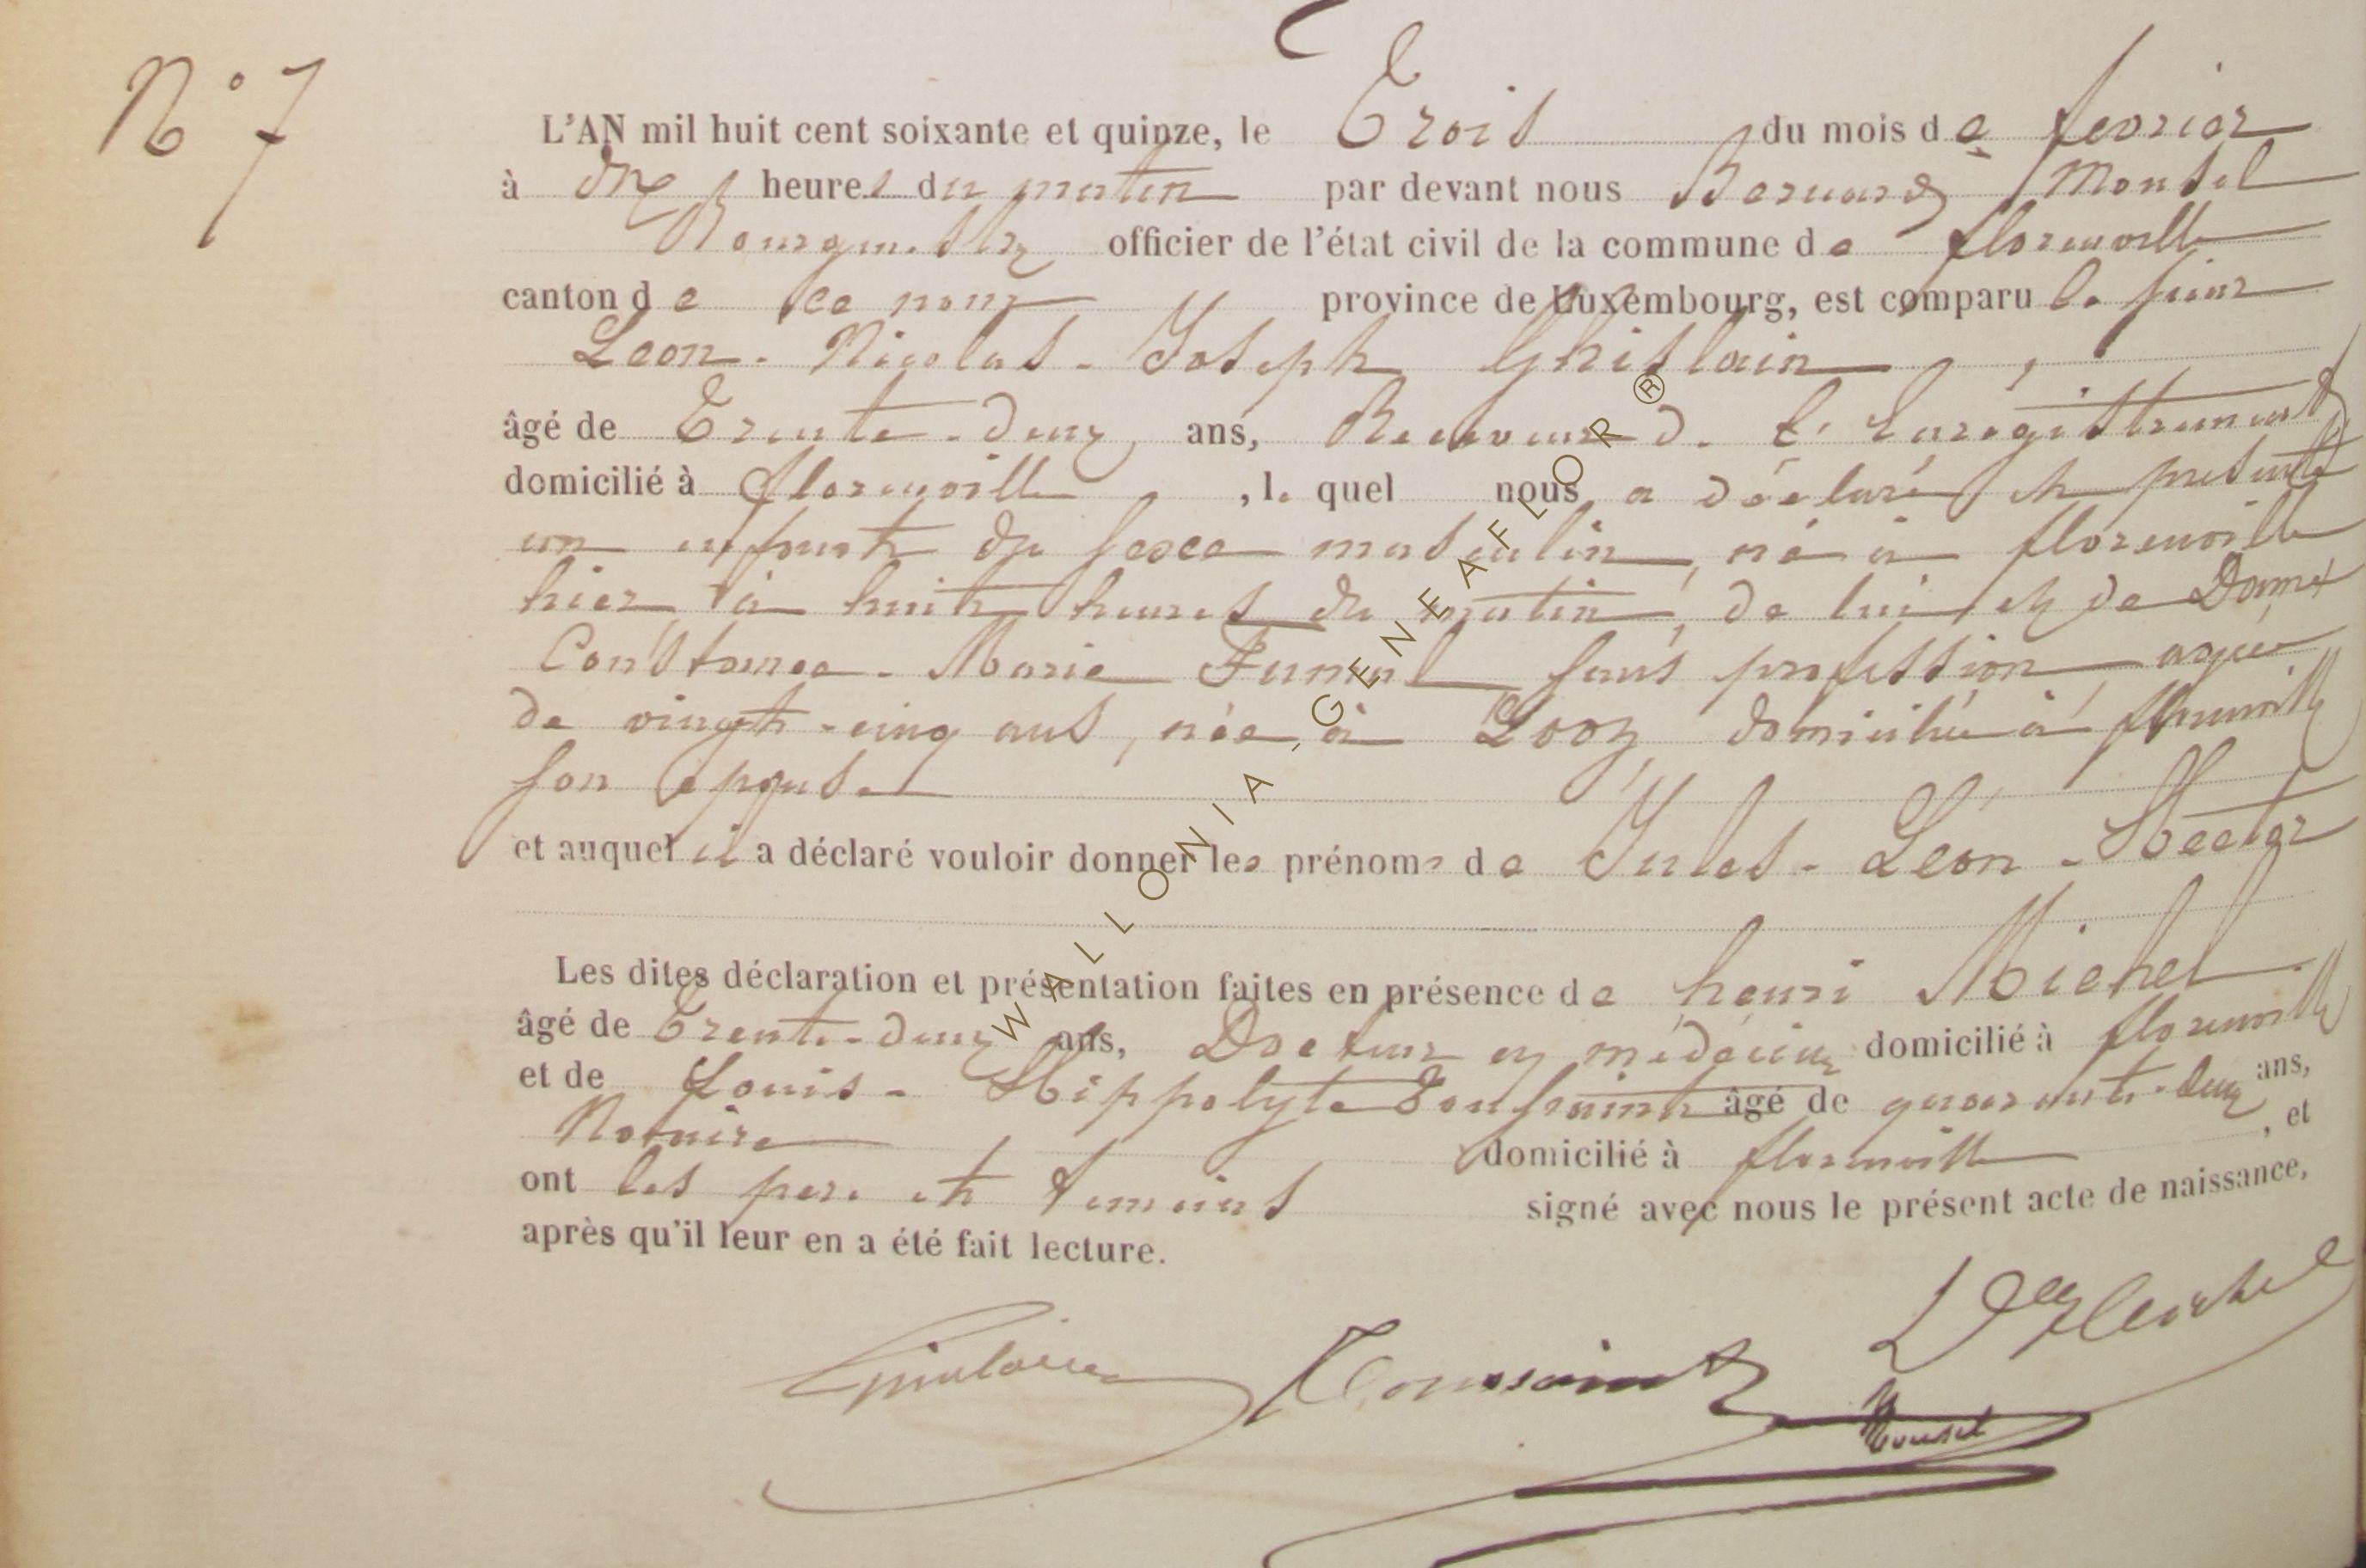 N° 7
L'AN mil huit cent soixante et quinze, le Trois du mois de fevrier
à dix heures du matin par devant nous Bernard Monsel
Bourgmestre officier de l'état civil de la commune de florenville
canton de ce nom province de Luxembourg, est comparu le sieur
Leon - Nicolas - Joseph Ghislain,
âgé de Trente - deux ans, Receveur de l'Enregistrement
domicilié à florenville, le quel nous a déclaré et presenté
un enfant du sexe masculin, né à florenville
hier à huit heures du matin, de lui et de Dame
Constance - Marie sans profession agée
de vingt - cinq ans, née à Looz, domiciliée à florenville
son epouse
et auquel il a déclaré vouloir donner les prénoms de Jules - Léon - Hector
Les dites déclaration et présentation faites en présence de henri Michel
âgé de Trente - deux ans, Docteur en médecine domicilié à florenville
et de Louis - Hippolyte Toussaint âgé de quarante - deux ans,
Notaire domicilié à florenville, et
ont les pere et temoins signé avec nous le présent acte de naissance,
après qu'il leur en a été fait lecture.
Ghislain Toussaint
Monsel
WALLONIA-GENEAFLOR ®